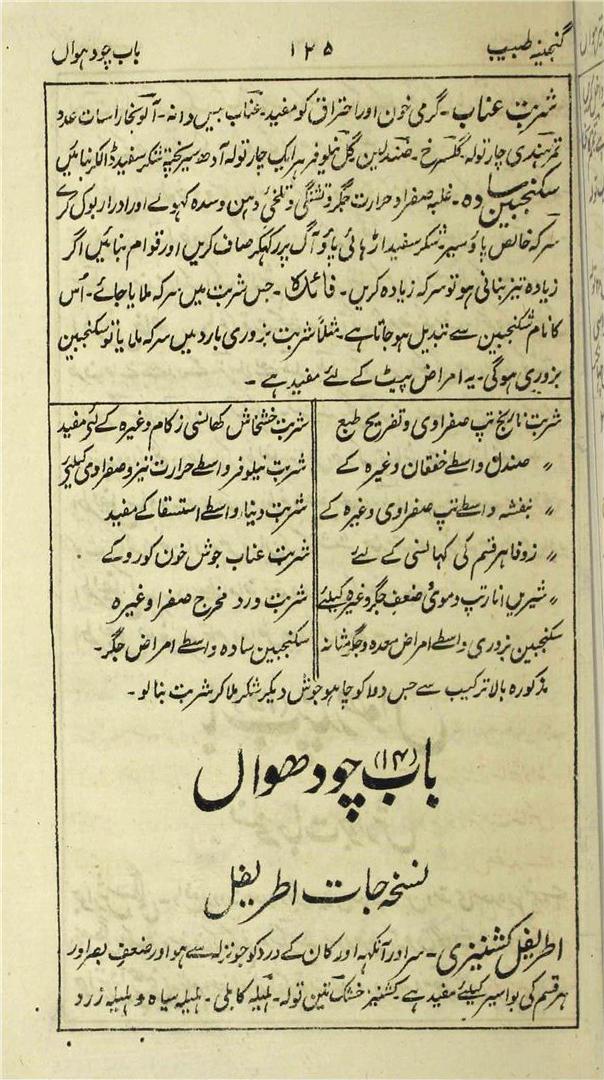 گنجینہ طبیب ۱۲۵ باب چودہواں
شربت عناب۔ گرمی خون اور احتراق کو مفید۔ عناب بیس دانہ۔ آلو بخارا سات عدد
تمر ہندی چار تولہ گلسرخ۔ صندلین۔ گل نیلوفر ہرایک چار تولہ آدھ سیر پختہ شکر سفید ڈالکر بنائیں
سکنجبین سادہ۔ غلبہ صفرا و حرارت جگر و تشنگی و تلخئ دہن و سدہ کہولے اور ادرار بول کرے
سرکہ خالص پاؤ سیر۔ شکر سفید اڑہائی پاؤ آگ پر رکہکر صاف کریں اور قوام بنائیں اگر
زیادہ تیز بنانی ہو تو سرکہ زیادہ کریں۔ فائدہ۔ جس شربت میں سرکہ ملایا جائے۔ اُس
کا نام سکنجبین سے تبدیل ہوجاتا ہے۔ مثلاً شربت بزوری بارد میں سرکہ ملایا تو سکنجبین
بزوری ہوگی۔ یہ امراض پیٹ کے لئے مفید ہے۔
شربت نارنج تپ صفراوی و تفریح طبع
〃 صندل واسطے خفقان وغیرہ کے
〃 بنفشہ واسطے تپ صفراوی وغیرہ کے
〃 زوفا ہر قسم کی کہانسی کے لئے
〃 شیریں انار تپ دموی ضعف جگر وغیرہ کیلئے
سکنجبین بزوری واسطے امراض معدہ و جگر مثانہ
شربت خشخاش کھانسی زکام وغیرہ کے لئے مفید
شربت نیلوفر واسطے حرارت تیز و صفراوی کیلئے
شربت دینار واسطے استسقا کے مفید
شربت عناب جوش خون کو روکے
شربت ورد مخرج صفرا وغیرہ
سکنجبین سادہ واسطے امراض جگر۔
مذکورہ بالا ترکیب سے جس دوا کو چاہو جوش دیکر شکر ملا کر شربت بنالو۔
باب (۱۴) چودھواں
نسخہ جات اطریفل
اطریفل کشنیزی۔ سر اور آنکہہ اور کان کے درد کو جو نزلہ سے ہو اور ضعف بصر اور
ہر قسم کی بواسیر کیلئے مفید ہے۔ کشنیز خشک تین تولہ۔ ہلیلہ کابلی۔ ہلیلہ سیاہ و ہلیلہ زرد